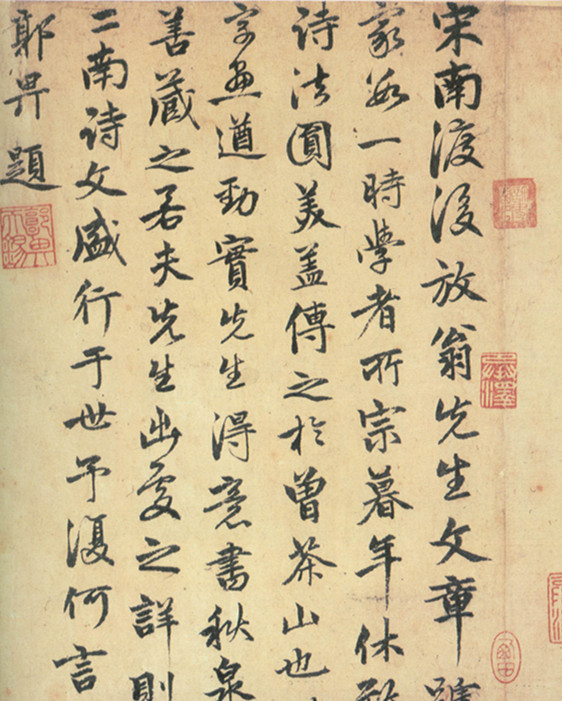 宋南渡後放翁先生文章號
家一時學者所宗暮年休
詩法圓美蓋傳之於曾茶山也
字畫遒勁實先生得意書秋泉
善藏之若夫先生出處之詳則
二南詩文盛行于世予復何言
郭畀題